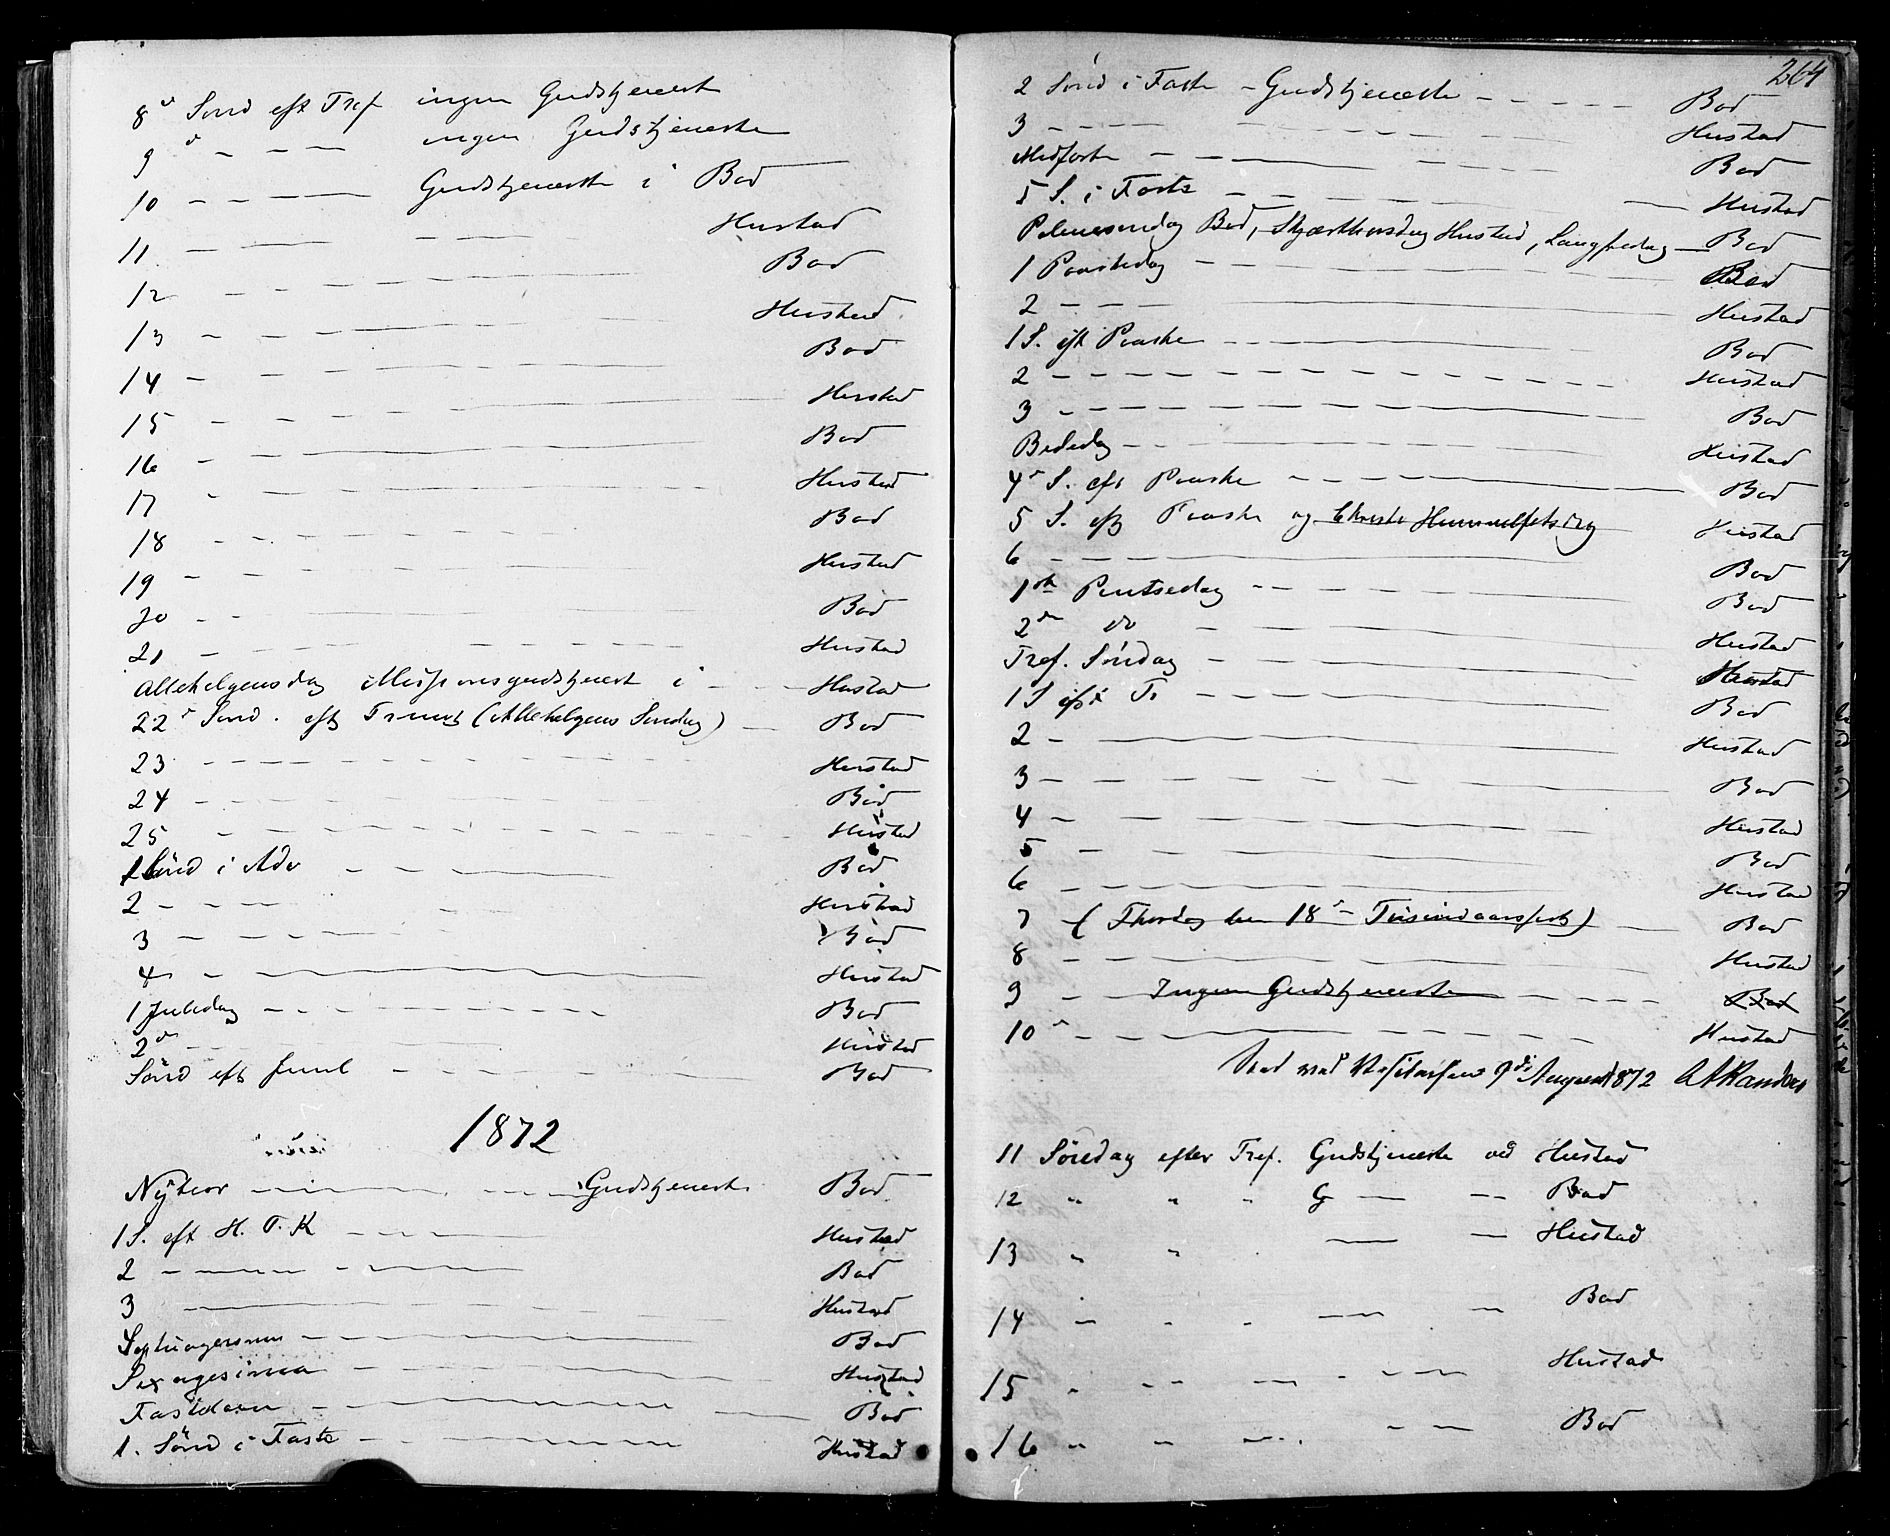 8de Sönd eft Tref ingen Gudstjeneste
9 d - - - ingen Gudstjeneste
10 - - - Gudstjeneste i Bod
11 - - - Hustad
12 - - - Bod
13 - - - Hustad
14 - - - Bod
15 - - - Hustad
16 - - - Bod
17 - Hustad
18 - - - Bod
19 - - - Hustad
20 - - Bod
21 - - - Hustad
Allehelgensdag Missionsgudstjenest i - - Hustad
22d Sönd. eft Trinit (Allehelgens Søndag) - Bod
23 - - - Hustad
24 - - - Bod
25 - - - Hustad
1 Sönd i Adv - - - Bod
2 - - - Hustad
3 - - - Bod
4 - - - Hustad
1 Juledag - - - Bod
2d - - - Hustad
Sönd eft Juul - - - Bod
1872
Nytaar - - - Gudstjeneste Bod
1 S. eft H. T. K - - - Hustad
2 - - - Bod
3 - - - Hustad
Septuagesima - - - Bod
Sexagesima - - - Hustad
Fastelavn - - - Bod
1. Sönd i Faste - - - Hustad
264
2 Sönd i Faste - Gudstjeneste - - - Bod
3 - - - Hustad
Midfaste - - - Bod
5 S. i Faste - - - Hustad
Palmesøndag Bod, Skjærthorsdag Hustad, Langfredag - Bod
1 Paaskedag - - - Bod
2 - - - Hustad
1 S. eft Paaske - - - Bod
2 - - - Hustad
3 - - - Bod
Bededag - - - Hustad
4d S. eft Paaske - - - Bod
5 S. eft Paaske og Christi Himmelfartsdag Hustad
6 - - - Bod
1ste Pintsedag - - - Bod
2den do - - - Hustad
Tref. Söndag - - - Hustad
1 S eft Tr - - - Bod
2 - - - Hustad
3 - - - Bod
4 - - - Hustad
5 - - - Bod
6 - - - Hustad
7 - (Thorsdag den 18de - Tusindaarsfest) - Bod
8 - - - Hustad
9 - - Ingen Gudstjeneste - - - Bod
10d - - - Hustad
Seet ved Visitatsen 9de August 1872 A Randers
11 Söndag efter Tref. Gudstjeneste ved Hustad
12 " " " G - - Bod
13 " " - - Hustad
14 - - - - - Bod
15 " - - - - - Hustad
16 " - - - - Bod